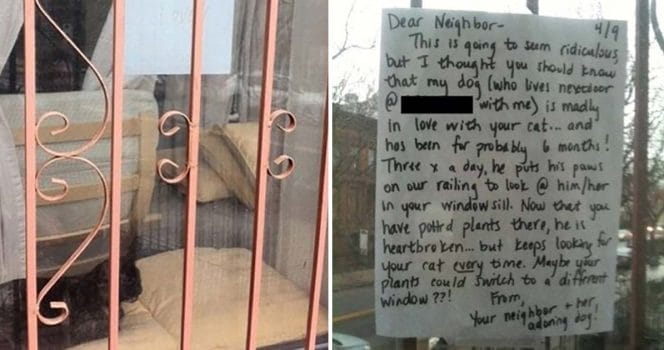 Dear Neighbor-
4/9
This is going to seem ridiculous,
but I thought you should know
that my dog (who lives nextdoor
@ with me) is madly
in love with your cat... and
has been for probably 6 months!
Three x a day, he puts his paws
on our railing to look @ him/her
in your windowsill. Now that you
have pottrd plants there, he is
heartbroken... but keeps looking for
your cat every time. Maybe your
plants could switch to a different
window??!
From,
Your neighbor + her
adoring dog!